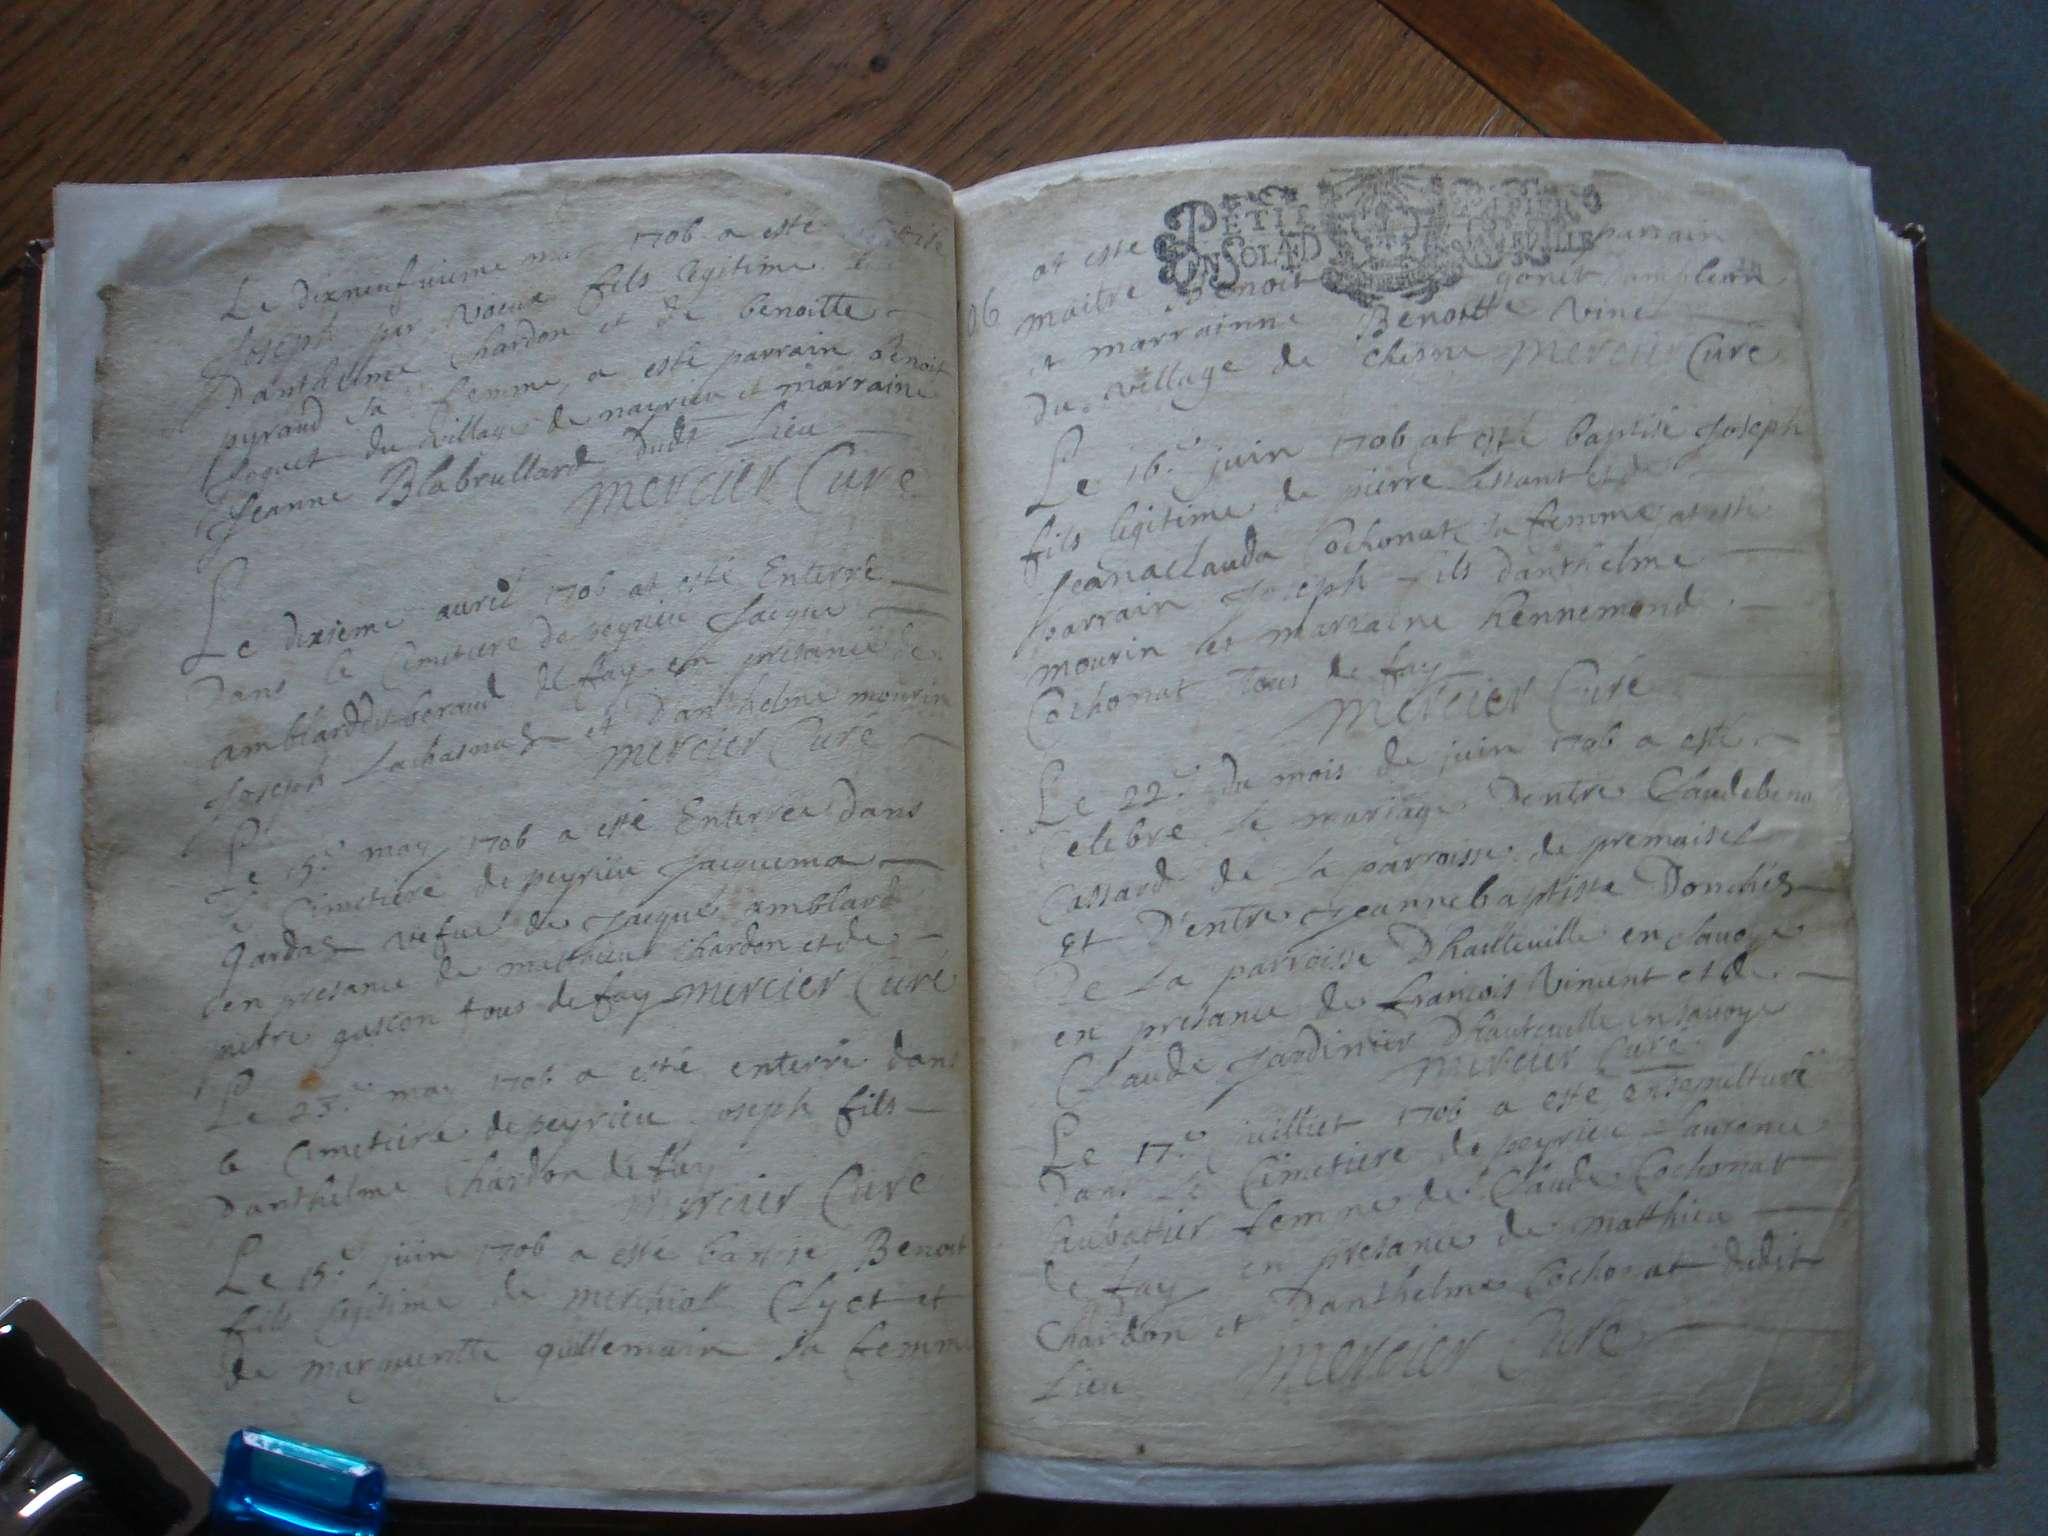 Le dixneufvieme mar 1706 a esté
Joseph par voeux fils legitime
Danthelme Chardon et de benoitte
pyraud sa femme, a esté parrain Benoit
Joquet du village de nayrieu et marraine
Jeanne Blabrullard dudt Lieu
mercier Curé
Le dixieme auril 1706 at esté Enterré
dans le Cimetiere de peyrieu Jacque
amblard dit beraud de fay en presance de
Joseph Lachasnaz et Danthelme mourin
mercier Curé
Le 15.e may 1706 a esté Enterrée dans
le Cimetiere de peyrieu Jacquema
gardaz vefue de Jacque amblard
en presance de mathieu Chardon et de
mitre gascon tous de fay mercier Curé
Le 23.e may 1706 a esté enterré dans
le Cimetiere de peyrieu Joseph fils
Danthelme Chardon de fay
mercier Curé
Le 15.e juin 1706 a esté baptise Benoit
fils legitime de merchiol Clyet et
de marguerite guillemain sa femme
PETIT PAPIER
EN SOL A D
at esté parrain
06 maitre Benoit
et marrainne Benoitte vinet
du village de chesne mercier Curé
Le 16.e juin 1706 at esté baptisé Joseph
fils legitime de pierre Lessant et de
Jeanaclauda Cochonat sa femme at esté
parrain Joseph fils danthelme
mourin et marraine hennemond
Cochonat Tous de fay
mercier Curé
Le 22.e du mois de juin 1706 a esté
Celebre le mariage Dentre Claude beno
Cassard de la parroisse de premaisel
et D'entre Jeannebaptiste Donchéz
De La parroisse D'haulteuille en sauoye
en presance de francois Vincent et de
Claude Jardinier D'hauteuille en sauoye
mercier Curé
Le 17.e juilliet 1706 a esté ensepulturé
dans le Cimetiere de peyrieu Laurence
hubattier femme de Claude Cochonat
de fay en presance de mathieu
Chardon et Danthelme Cochonat dudit
Lieu mercier Curé